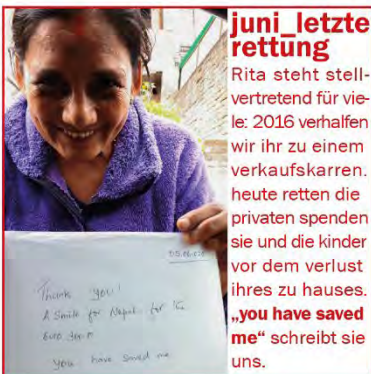 juni_letzte
rettung
Rita steht stell-
vertretend für vie-
le: 2016 verhalfen
wir ihr zu einem
verkaufskarren.
heute retten die
privaten spenden
sie und die kinder
vor dem verlust
ihres zu hauses.
„you have saved
me“ schreibt sie
uns.
Thank you!
A Smile for Nepal for
Euro
you have saved me